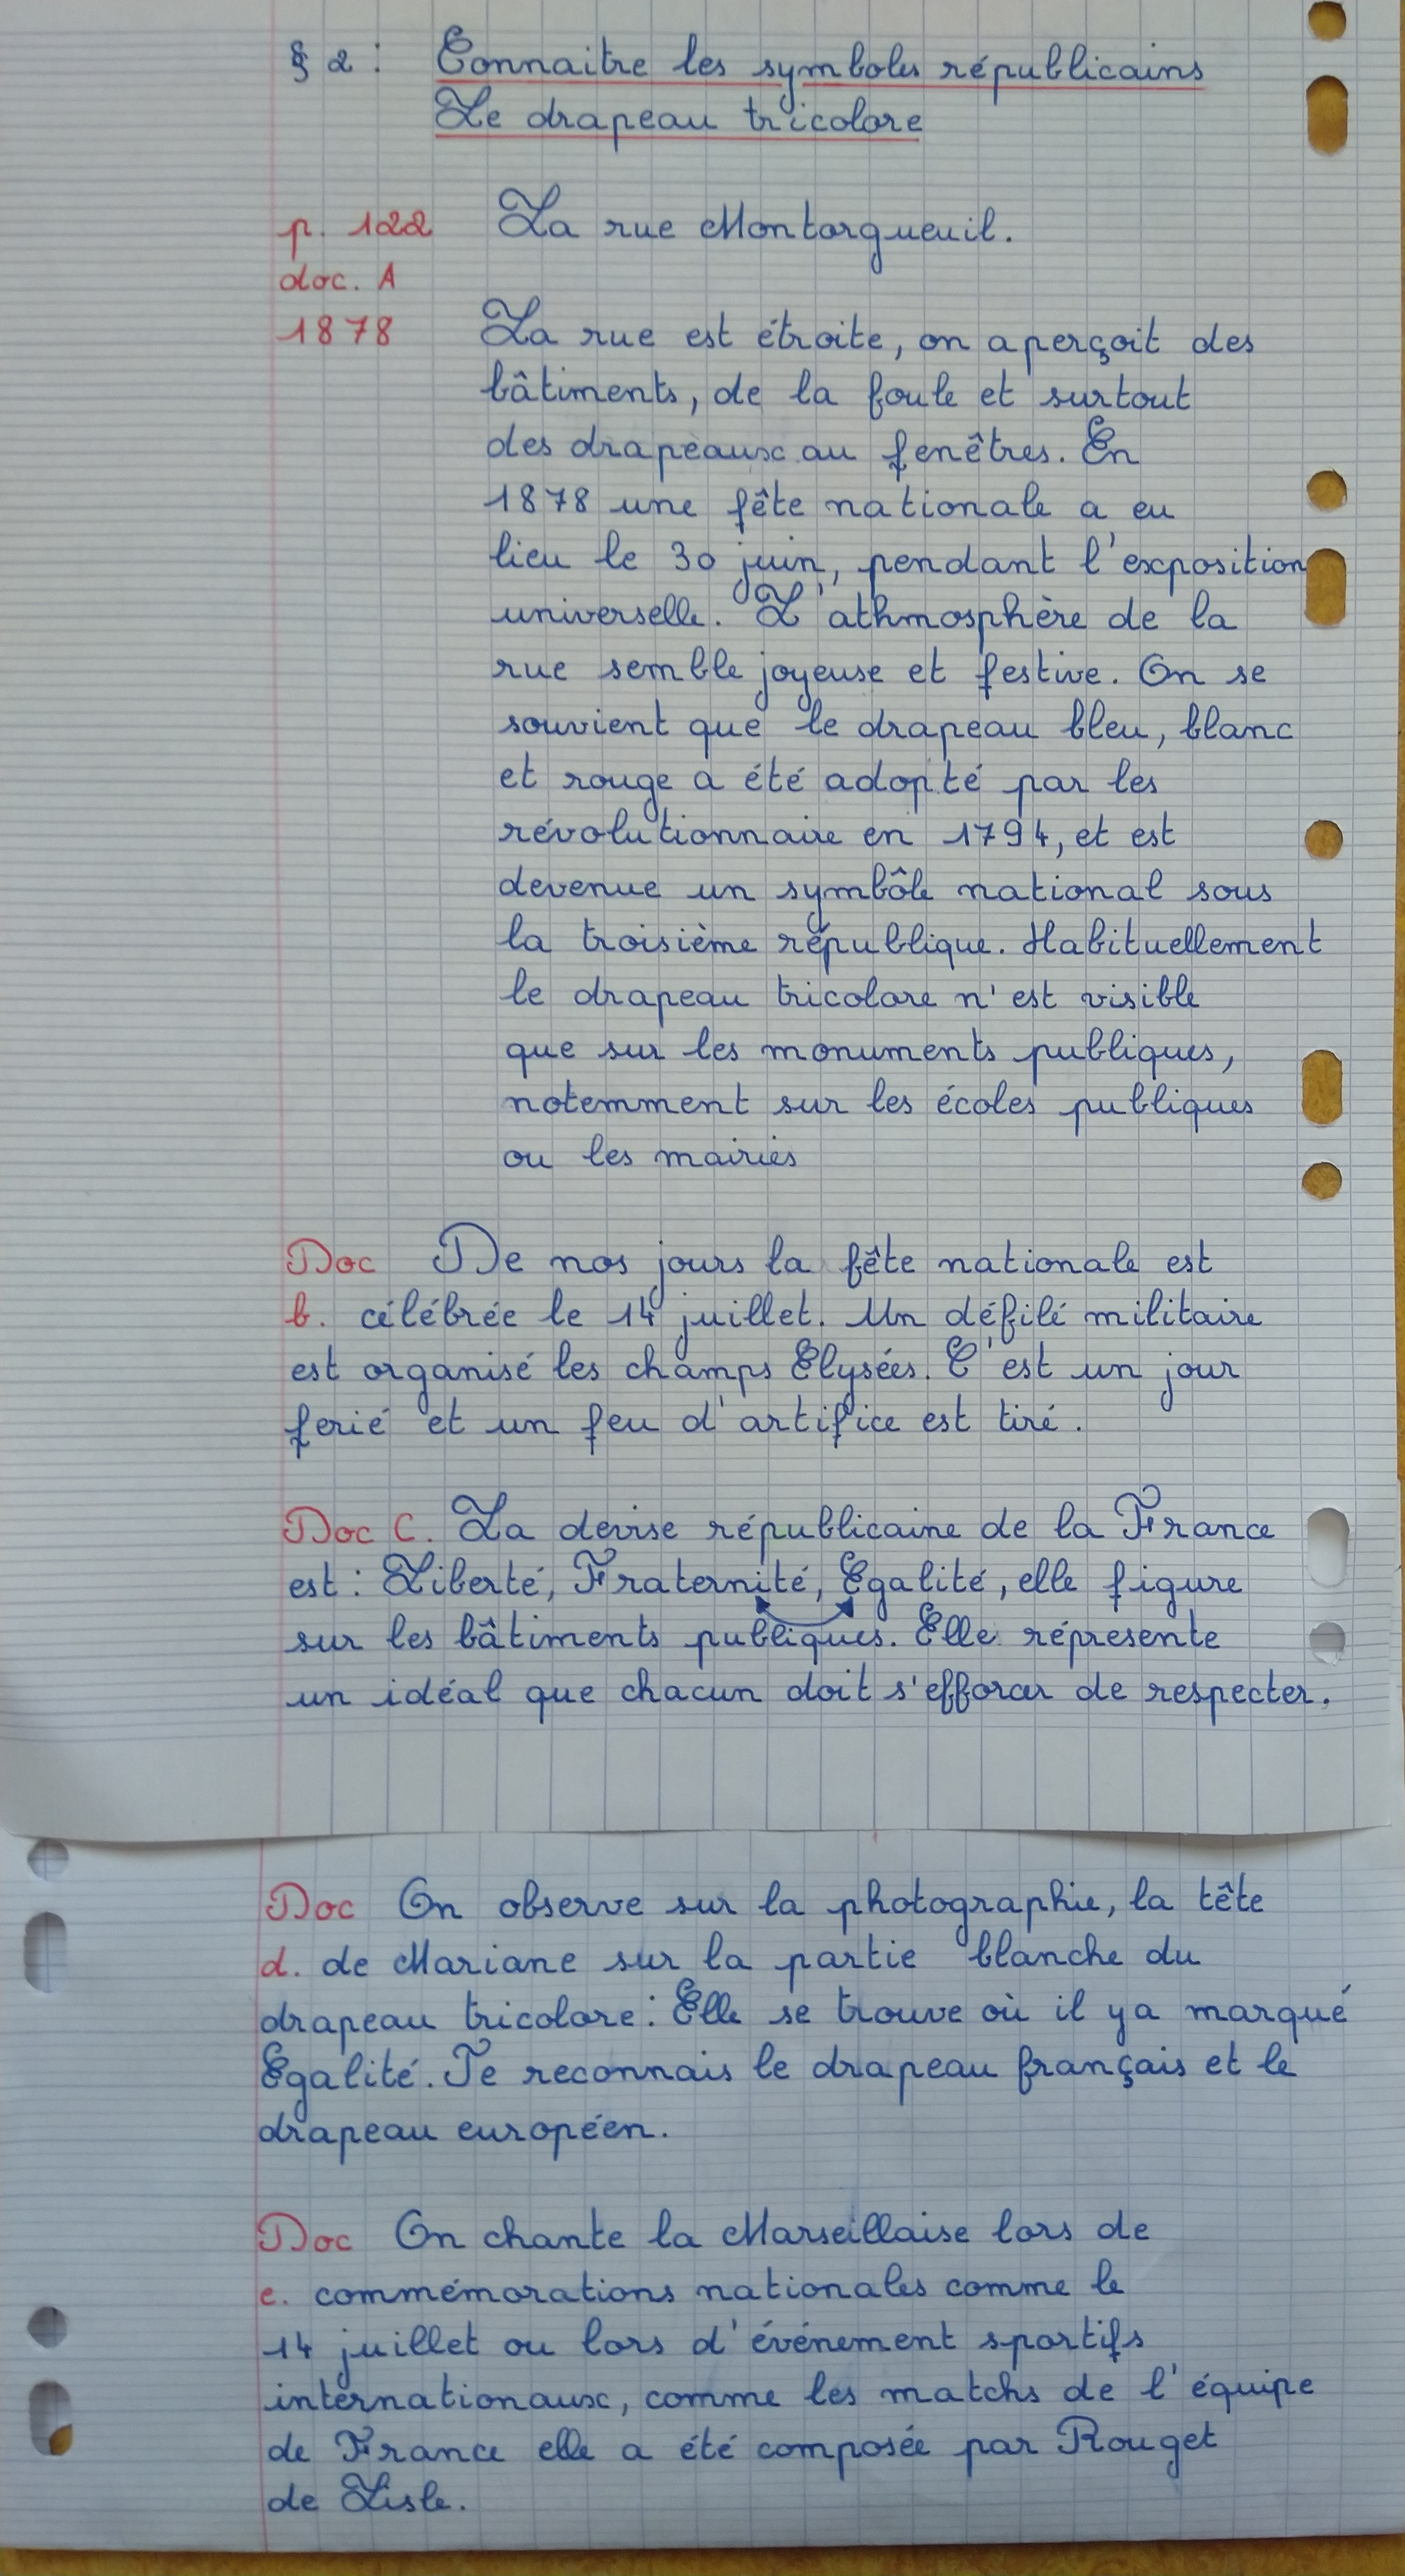 § 2 : Connaitre les symboles républicains
Le drapeau tricolore
p. 122 La rue Montorgueuil.
doc. A
1878 La rue est étroite, on aperçoit des
bâtiments, de la foule et surtout
des drapeaux au fenêtres. En
1878 une fête nationale a eu
lieu le 30 juin, pendant l'exposition
universelle. L'athmosphère de la
rue semble joyeuse et festive. On se
souvient que le drapeau bleu, blanc
et rouge a été adopté par les
révolutionnaire en 1794, et est
devenue un symbôle national sous
la troisième république. Habituellement
le drapeau tricolore n'est visible
que sur les monuments publiques,
notemment sur les écoles publiques
ou les mairies
Doc De nos jours la fête nationale est
b. célébrée le 14 juillet. Un défilé militaire
est organisé les champs Elysées. C'est un jour
ferié et un feu d'artifice est tiré.
Doc C. La devise républicaine de la France
est : Liberté, Fraternité, Egalité, elle figure
sur les bâtiments publiques. Elle répresente
un idéal que chacun doit s'efforcer de respecter.
Doc On observe sur la photographie, la tête
d. de Mariane sur la partie blanche du
drapeau tricolore : Elle se trouve où il y a marqué
Egalité. Je reconnais le drapeau français et le
drapeau européen.
Doc On chante la Marseillaise lors de
e. commémorations nationales comme le
14 juillet ou lors d'événement sportifs
internationaux, comme les matchs de l'équipe
de France elle a été composée par Rouget
de Lisle.